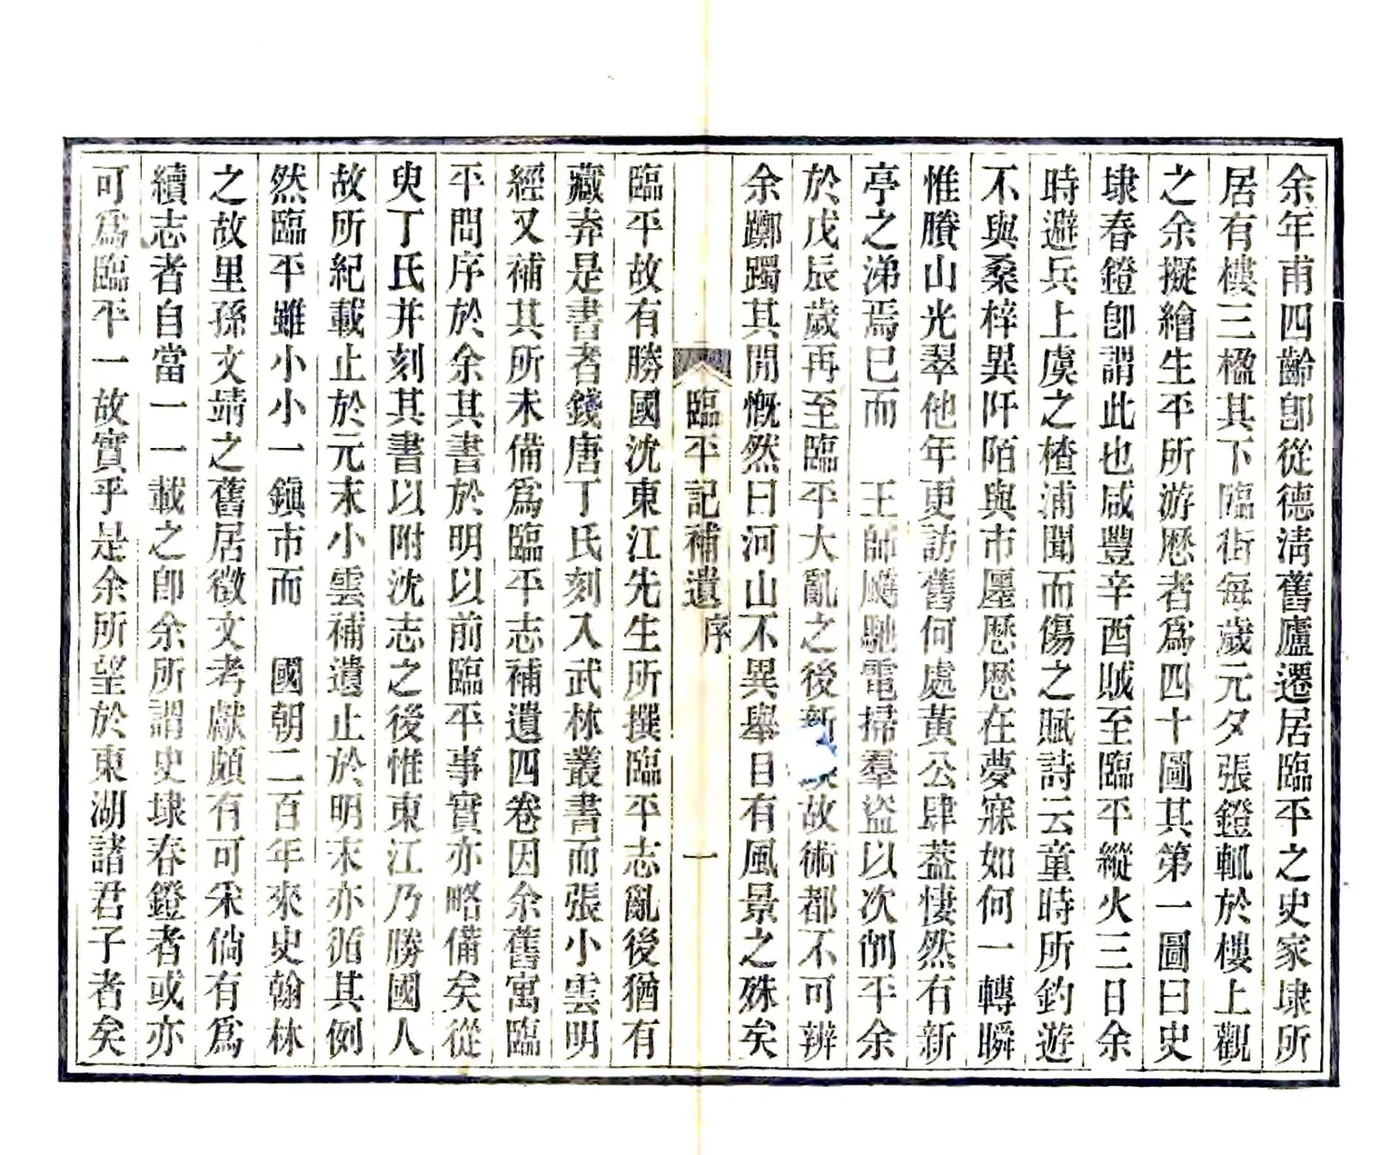 余年甫四齡卽從德淸舊廬遷居臨平之史家埭所
居有樓三楹其下臨街每歲元夕張鐙輒於樓上觀
之余擬繪生平所游歷者爲四十圖其第一圖曰史
埭春鐙卽謂此也咸豐辛酉賊至臨平縱火三日余
時避兵上虞之楂浦聞而傷之賦詩云童時所釣遊
不與桑梓異阡陌與市廛歷歷在夢寐如何一轉瞬
惟賸山光翠他年更訪舊何處黃公肆葢悽然有新
亭之涕焉已而　王師飈馳電掃羣盜以次削平余
於戊辰歲再至臨平大亂之後新故術都不可辨
余躑躅其閒慨然曰河山不異舉目有風景之殊矣
臨平記補遺
序
一
臨平故有勝國沈東江先生所撰臨平志亂後猶有
藏弆是書者錢唐丁氏刻入武林叢書而張小雲明
經又補其所未備爲臨平志補遺四卷因余舊寓臨
平問序於余其書於明以前臨平事實亦略備矣從
臾丁氏并刻其書以附沈志之後惟東江乃勝國人
故所紀載止於元末小雲補遺止於明末亦循其例
然臨平雖小小一鎭市而　國朝二百年來史翰林
之故里孫文靖之舊居徵文考獻頗有可采倘有爲
續志者自當一一載之卽余所謂史埭春鐙者或亦
可爲臨平一故實乎是余所望於東湖諸君子者矣